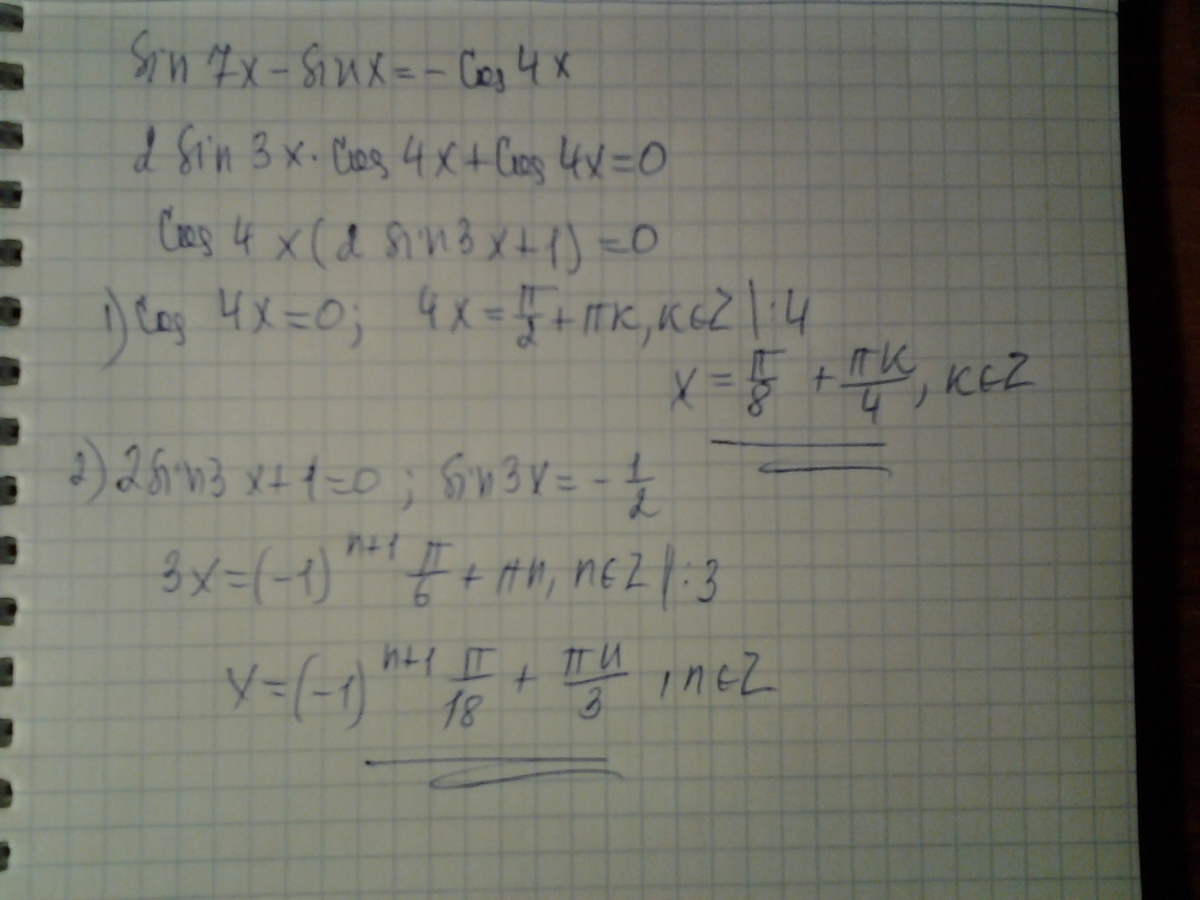 sin 7x - sin x = - cos 4x
2 sin 3x · cos 4x + cos 4x = 0
cos 4x (2 sin 3x + 1) = 0
1) cos 4x = 0; 4x = π/2 + πк, к∈Z | : 4
x = π/8 + πк/4, к∈Z
2) 2 sin 3x + 1 = 0; sin 3x = - 1/2
3x = (-1)^(n+1) π/6 + πn, n∈Z | : 3
x = (-1)^(n+1) π/18 + πn/3, n∈Z